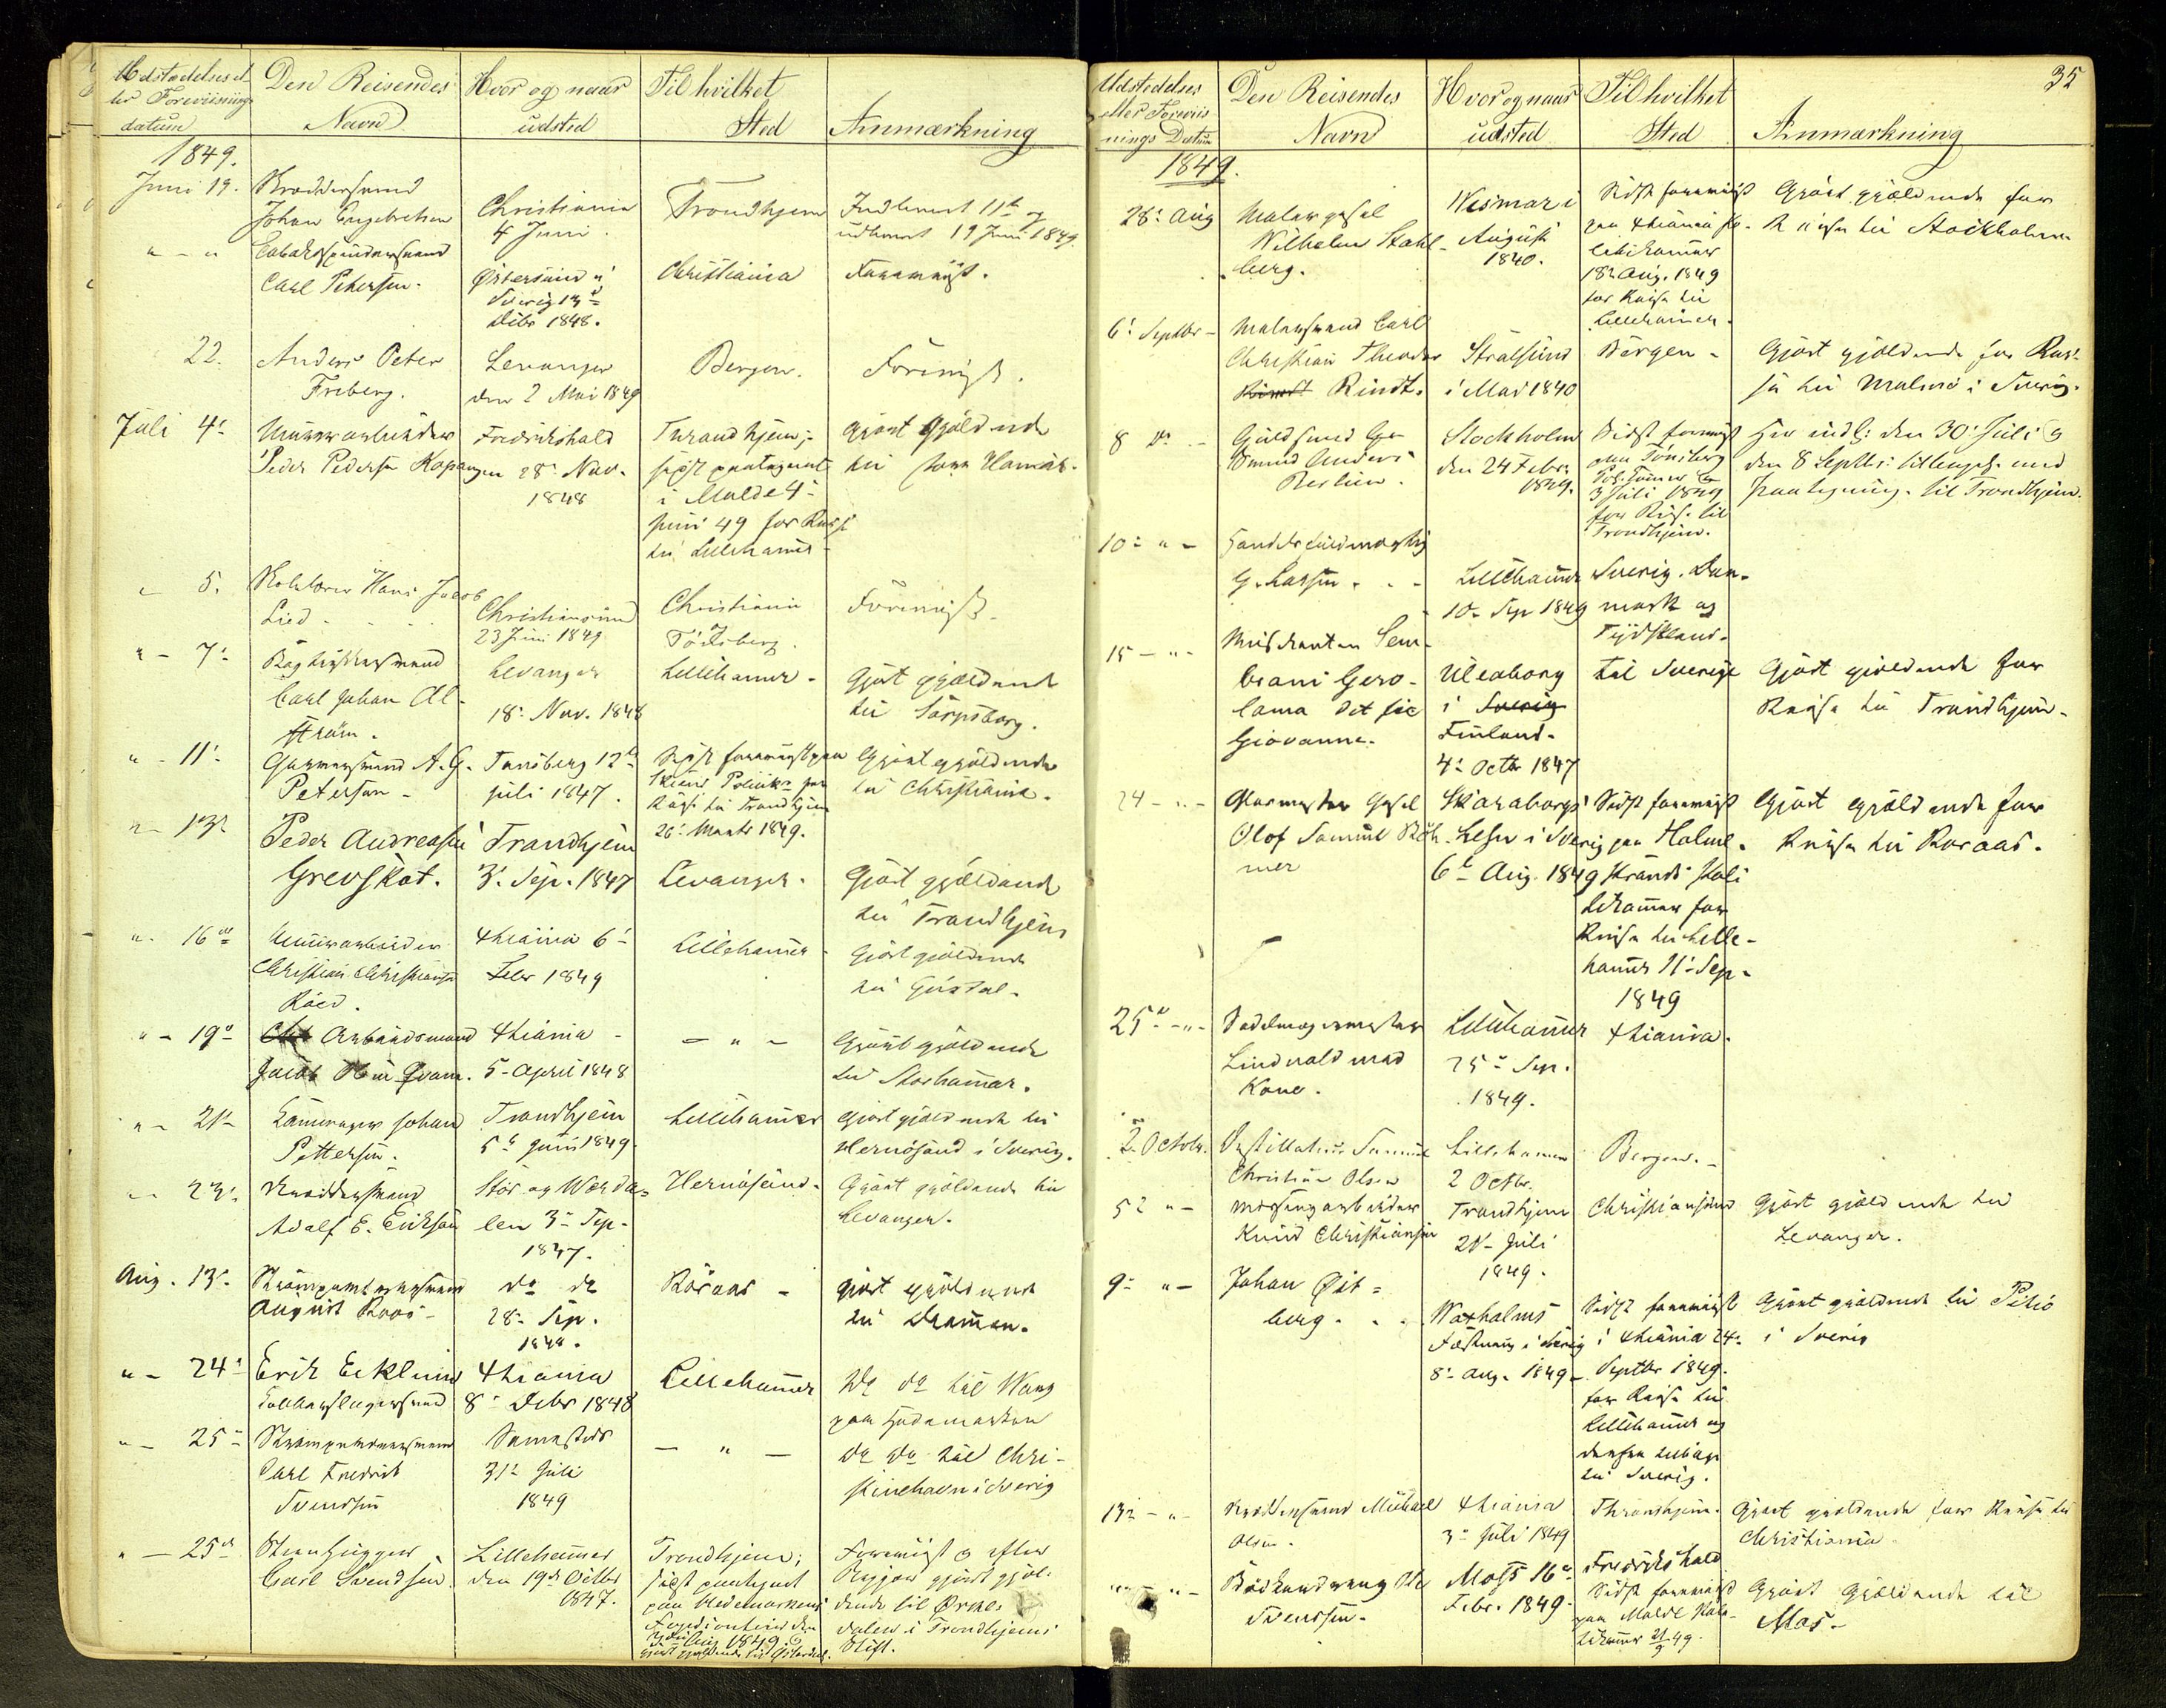 Udstædelses el
ler Foreviisnings
datum
Den Reisendes
Navn
Hvor og naar
udsted
Til hvilket
Sted
Anmærkning
1849.
Juni 19.
Skræddersvend
Johan Engebretsen
Christiania
4 Juni.
Trondhjem
Indkomst 11te og
udkomst 19 Juni 1849.
" - "
Tobakspindersvend
Carl Petersen.
Østersund i
Sverig 13de
Debr 1848.
Christiania
Forevüst.
22.
Anders Peter
Friberg.
Levanger
den 2 Mai 1849
Bergen.
Foreviist.
Juli 4de
Peder Pedersen
Fredrikshald
28de Nov.
1848
Trondhjem;
sidst paategnet
i Molde 4de
Juni 49 for Reise
til Lillehammer
Gjort gjeldende
til
" 5.
Hans Jacob
Lied
Christiansund
23 Juni 1849
Christiania
Foreviist.
" - 7de
Carl Johan Al-
strøm.
Levanger
18de Nov. 1848
Lillehammer
Gjort gjeldende
til Sarpsborg.
" - 11te
Garversvend A. G.
Petersen
Tønsberg 12te
Juli 1847.
Sidst foreviist paa
Reise til Trondhjem
26de Marts 1849.
Gjort gjeldende
til Christiania.
" - 13de
Peder Andreasen
Grevskot.
Trondhjem
3de Sep. 1847
Levanger.
Gjort gjeldende
til Trondhjem
" - 16de
Christian Christiansen
Xtiania 6te
Febr 1849
Lillehammer
Gjort gjeldende
til
" - 19de
Arbeidsmand
Jacob Qvam.
Xtiania
5te April 1848
- " -
Gjort gjeldende
til Storhammer.
" - 21de
Johan
Pettersen.
Trondhjem
5te Juni 1849.
Lillehammer
Gjort gjeldende til
Hernøsand i Sverig.
" 23de
Skræddersvend
Adolf E. Erikson
Stør og Værda-
len 3de Sep.
1847.
Hernøsand.
Gjort gjeldende til
Levanger.
Aug. 13de
August Roos
do do
28de Sep.
1848.
Røraas
gjort gjeldende
til Drammen.
" - 24de
Erik Ecklund
Xtiania
8de Debr 1848
Lillehammer
do do til Wang
paa Hedemarken
" - 25de
Carl Fredrik
Svendsen
31te Juli
1849
- " -
do do til Chri-
stinehavn i Sverig
" - 25de
Steenhugger
Carl Svendsen
Lillehammer
den 19de Octbr
1847.
Trondhjem;
sidst paategnet
paa Hedemarkens
Fogdicontoir den
1849
Foreviist og efter
gjort gjel-
dende til Orke-
dalen i Trondhjems
Stift.
35
Udstedelses
eller Foreviis
nings Datum
Den Reisendes
Navn
Hvor og naar
udsted
Til hvilket
Sted
Anmærkning
1849.
28de Aug
Malergesel
Wilhelm Stahl-
berg.
Wismar i
August
1840.
Sidst foreviist
paa Xtiania Po-
litikammer
18de Aug. 1849
for Reise til
Lillehammer.
Gjort gjeldende for
Reise til Stockholm
6te Septbr
Malersvend Carl
Christian Theodor
Rindt.
Stralsund
i Mai 1840
Bergen
Gjort gjeldende for Rei-
se til Malmø i Sverig.
8 do
Guldsmed
Anders
Berlin.
Stockholm
den 24 Febr.
1849.
Sidst foreviist
paa Tønsberg
3 Juli 1849
for Reise til
Trondhjem.
Her indl: den 30te Juli og
den 8 Septbr: tilbagel. med
Paategning til Trondhjem.
10de " -
Handelsfuldmægtig
G. Larsen
Lillehammer
10de Sep 1849
Sverig, Dan-
mark og
Tydskland.
15 - " -
Musikanten
Gero-
lama
Giovanne.
Uleaborg
i Sverig
Finland.
4de Octbr 1847
til Sverige
Gjort gjeldende for
Reise til Trondhjem.
24 - " -
Glarmester Gesel
Olof Samuel
Skaraborgs
Lehn i Sverig
6te Aug. 1849
Sidst foreviist
paa Holme-
strands Poli
tikammer for
Reise til Lille-
hammer 11te Sep.
1849
Gjort gjeldende for
Reise til Røraas.
25de - " -
Sadelmagermester
Lindvald med
Kone.
Lillehammer
25de Sep.
1849.
Xtiania.
2 Octobr.
Samuel
Christian Olsen
Lillehammer
2 Octbr.
Bergen.
5te " -
Knud Christiansen
Trondhjem
21de Juli
1849.
Christiansund
Gjort gjeldende til
Levanger.
9de " -
Johan Øst-
berg.
Waxholms
Fæstning i Sverig
8de Aug. 1849
Sidst foreviist
i Xtiania 24de
Septbr 1849.
for Reise til
Lillehammer og
derfra tilbage
til Sverig.
Gjort gjeldende til Piteo
i Sverig
13de - " -
Skræddersvend Michael
Olsen.
Xtiania
3de Juli 1849
Throndhjem.
Gjort gjeldende for Reise til
Christiania
" - " -
Ole
Svensen.
Moss 16de
Febr. 1849.
Fredrikshald
Sidst foreviist
paa Molde Poli-
tikammer 21/9 49.
Gjort gjeldende til
Mos.